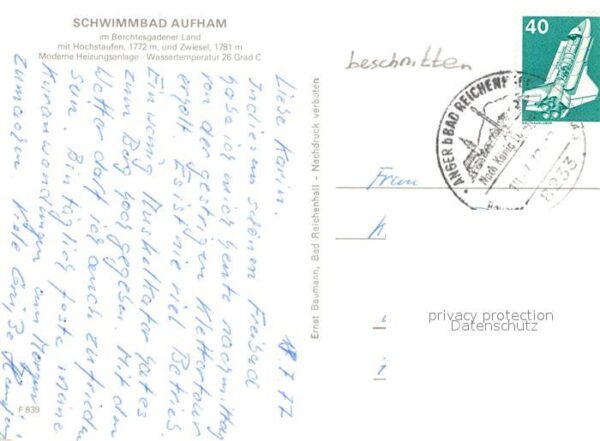 SCHWIMMBAD AUFHAM
im Berchtesgadener Land
mit Hochstaufen, 1772 m, und Zwiesel, 1781 m
Moderne Heizungsanlage - Wassertemperatur 26 Grad C
beschnitten
40
ANGER b BAD REICHENHALL
8233
17.7.77
Liebe Karin.
In diesem schönen Freibad
habe ich mich heute nachmittag
von der gestrigen Klettertour
erholt. Es ist nie viel Betrieb.
Ein wenig Muskelkater hat es
zum Berg hoch gegeben. Mit dem
Wetter darf ich auch zufrieden
sein. Bin täglich feste meine
Kuranwendungen am Morgen
zu machen. Viele Grüße
Ernst Baumann, Bad Reichenhall - Nachdruck verboten
Frau
privacy protection
Datenschutz
F 839